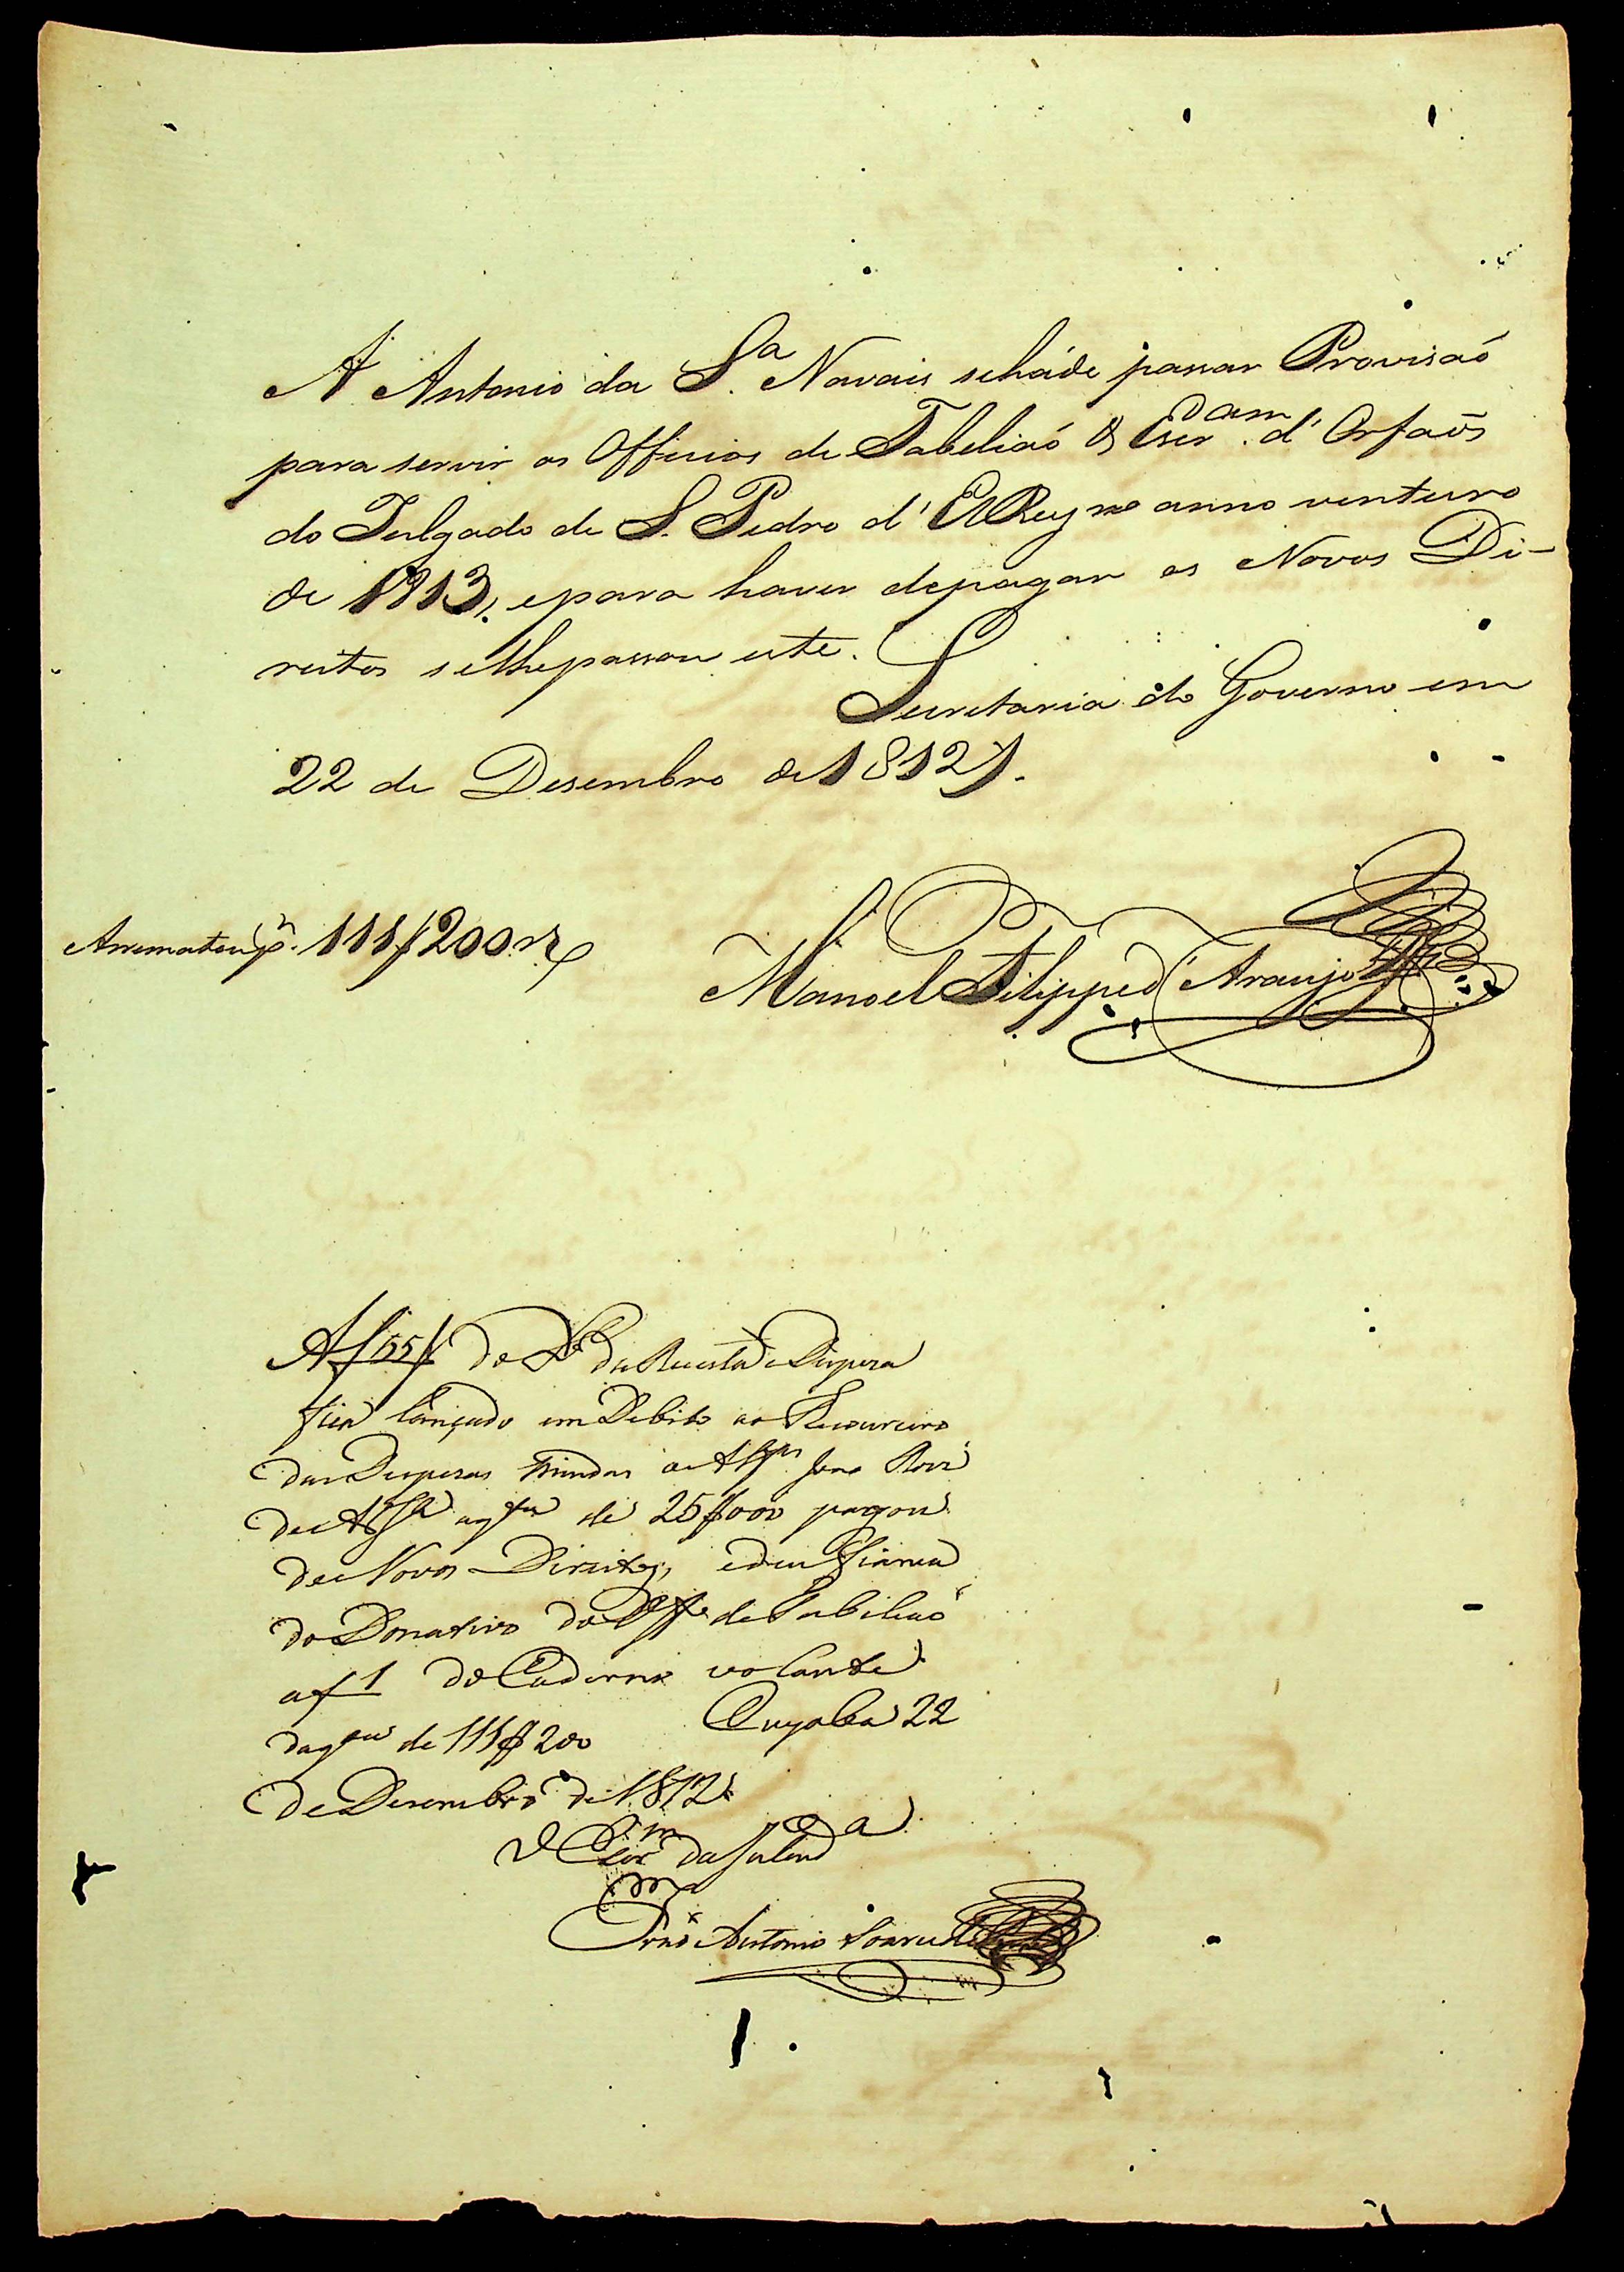 A Antonio da S.ª Navais seháde passar Provisaó
para servir os Officios de Tabeliaó & Escr.am d' Orfaõs
do Julgado de S. Pedro d' ElRey no anno venturo
de 1813, epara haver depagar os Novos Di-
reitos selhepassou este.
Secretaria do Governo em
22 de Desembro de 1812.
Arrematou p.r 111$200 r.s
Manoel Filippe d'Araujo
A f 55 do L.º da Receita e Despesa
fica lançado em Debito ao Thesoureiro
das Despesas miudas o Alf.es
de q.ta de 25$000 pagou
de Novos Direitos, edeu fiança
do Donativo do Off.º de Tabeliaó
a f 1 do Caderno volante
da q.tia de 111$200 Cuyaba 22
de Desembro de 1812
O Escr.m da Junta da Fazd.a
Antonio Soares